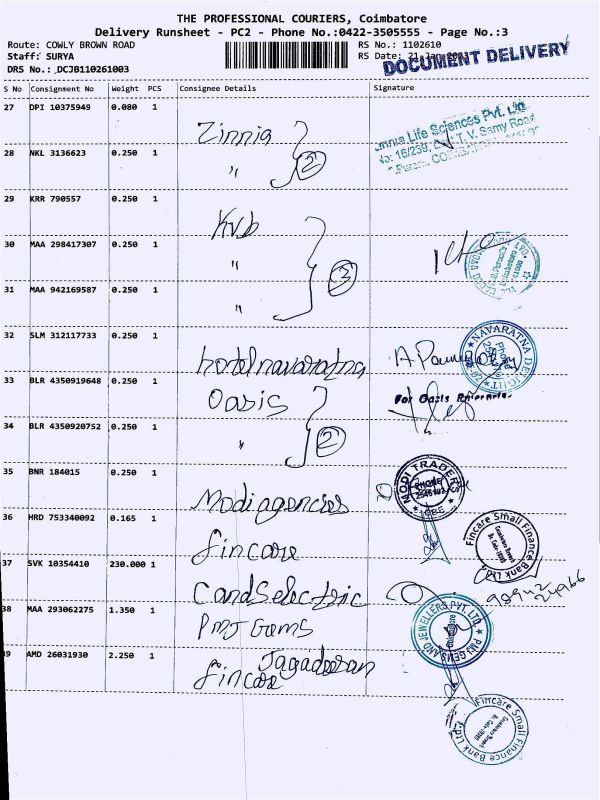 THE PROFESSIONAL COURIERS, Coimbatore
Delivery Runsheet - PC2 - Phone No.:0422-3505555 - Page No.:3
Route: COWLY BROWN ROAD
RS No.: 1102610
Staff: SURYA
RS Date: 21 Jan
DRS No.: DCJB110261003
DOCUMENT DELIVERY
S No Consignment No Weight PCS Consignee Details Signature
27 DPI 10375949 0.080 1 Zinnia
Life Sciences Pvt. Ltd
No: 16/239, T. V. Samy Road
28 NKL 3136623 0.250 1 " 2
29 KRR 790557 0.250 1 Kvb
30 MAA 298417307 0.250 1 "
3
31 MAA 942169587 0.250 1 "
32 SLM 312117733 0.250 1 hotel navaratna
NAVARATNA DELIGHT
33 BLR 4350919648 0.250 1 Oasis
For Oasis
34 BLR 4350920752 0.250 1 " 2
35 BNR 184015 0.250 1 Modi agencies
MODI TRADERS
PHONE
CBE
36 HRD 753340092 0.165 1 fincare
Fincare Small Finance Bank Ltd
37 SVK 10354410 230.000 1 CandSelectric
98942
24966
38 MAA 293062275 1.350 1 PMJ Gems
PMJ GEMS AND JEWELLERS PVT. LTD
Coimbatore
39 AMD 26031930 2.250 1 Jagadeesan
fincare
Fincare Small Finance Bank Ltd